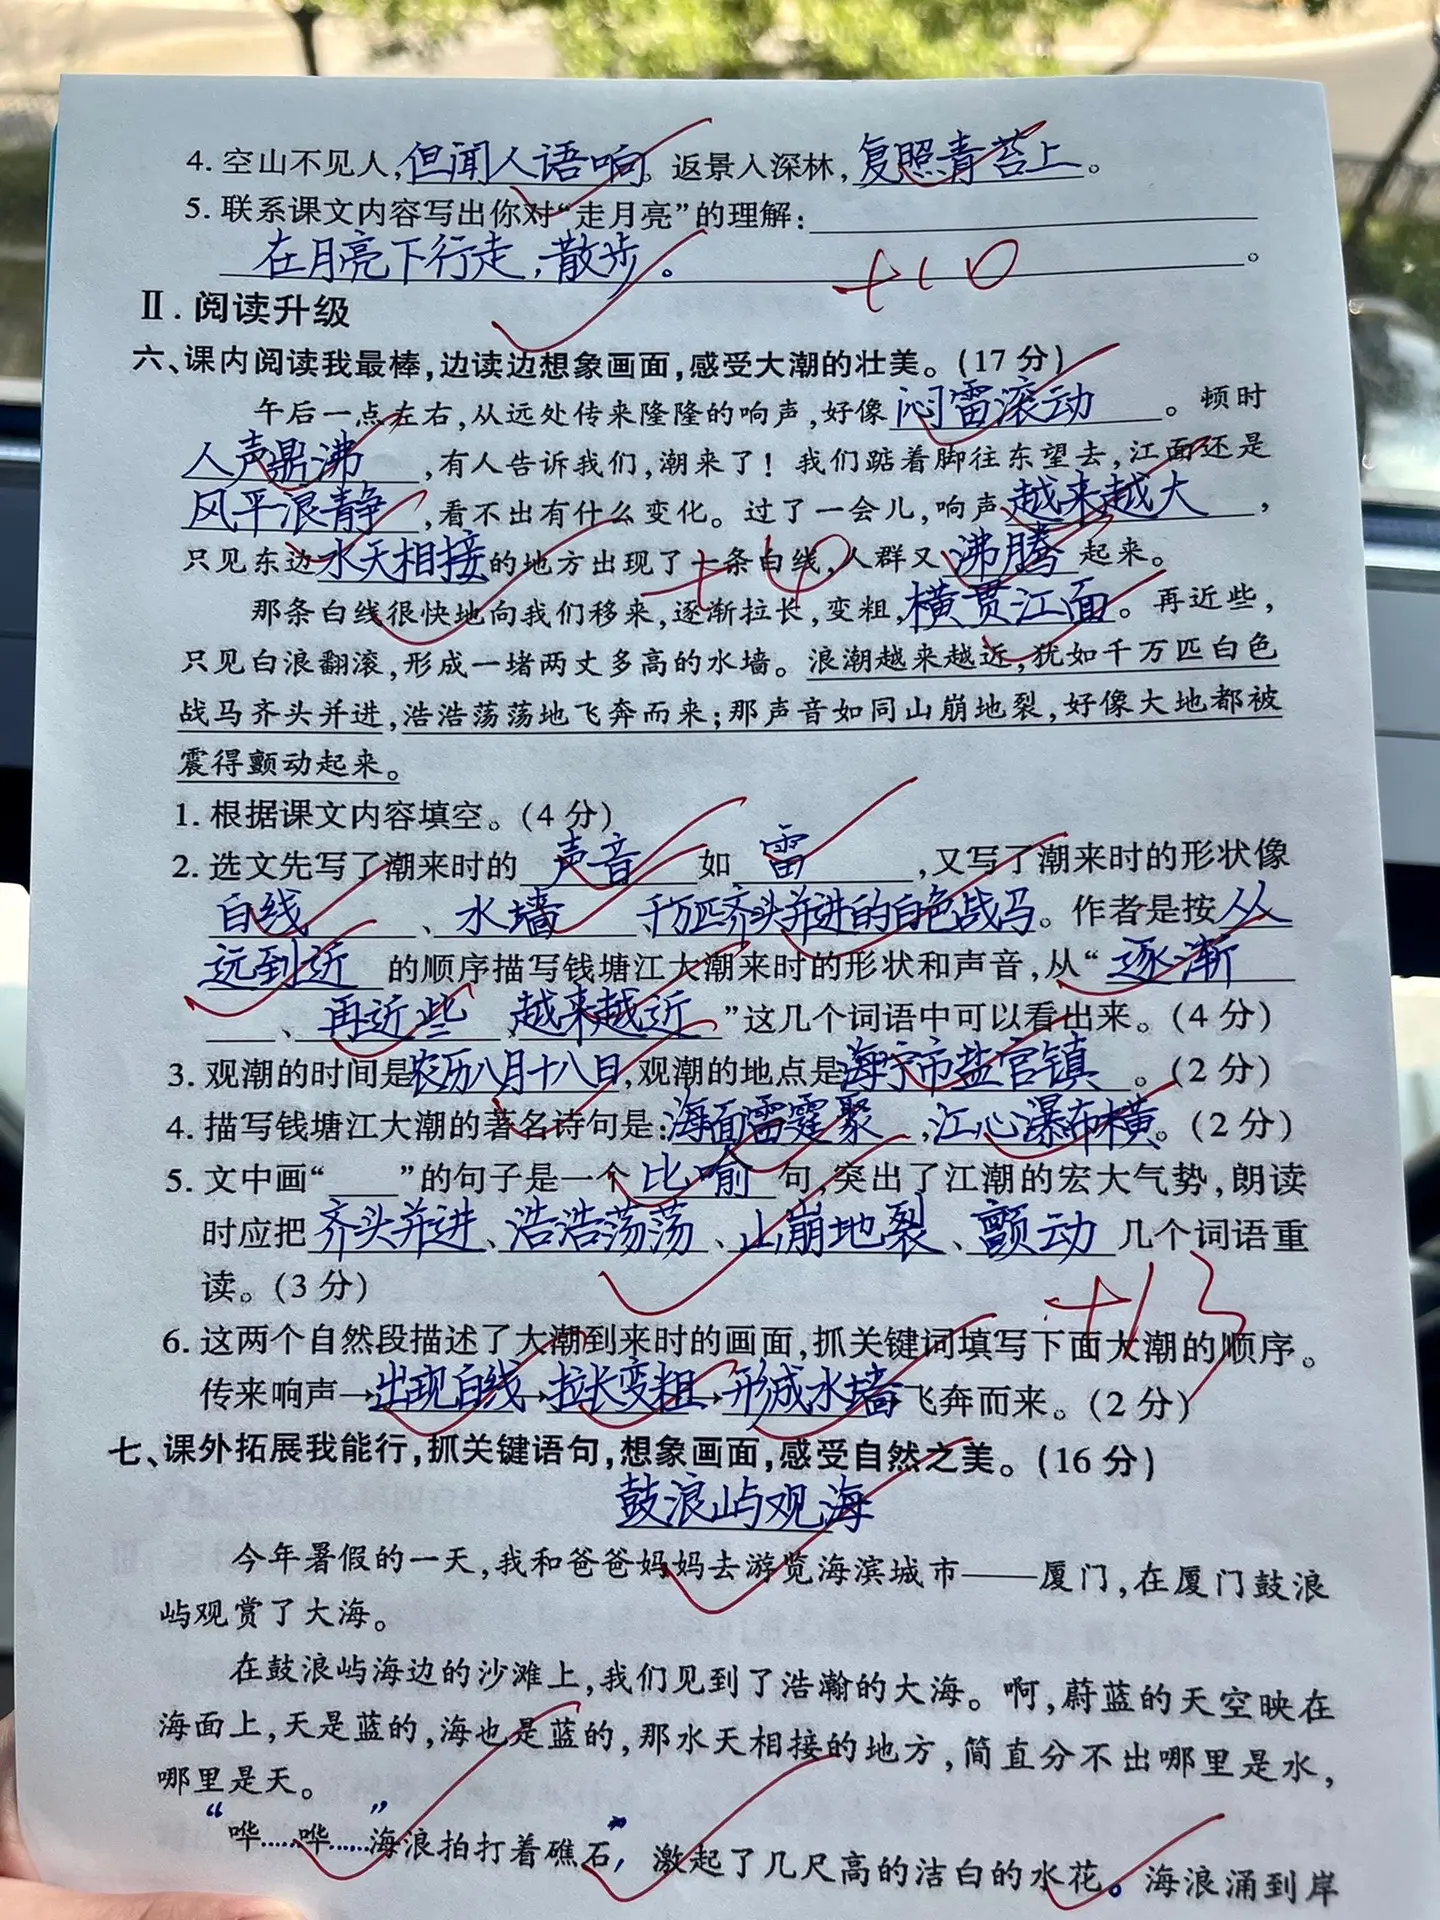 4. 空山不见人,但闻人语响。返景入深林,复照青苔上。
5. 联系课文内容写出你对“走月亮”的理解:
在月亮下行走,散步。。
+10
Ⅱ. 阅读升级
六、课内阅读我最棒,边读边想象画面,感受大潮的壮美。(17 分)
午后一点左右,从远处传来隆隆的响声,好像闷雷滚动。顿时
人声鼎沸,有人告诉我们,潮来了!我们踮着脚往东望去,江面还是
风平浪静,看不出有什么变化。过了一会儿,响声越来越大,
只见东边水天相接的地方出现了一条白线,人群又沸腾起来。
+4
那条白线很快地向我们移来,逐渐拉长,变粗,横贯江面。再近些,
只见白浪翻滚,形成一堵两丈多高的水墙。浪潮越来越近,犹如千万匹白色
战马齐头并进,浩浩荡荡地飞奔而来;那声音如同山崩地裂,好像大地都被
震得颤动起来。
1. 根据课文内容填空。(4 分)
2. 选文先写了潮来时的声音如雷,又写了潮来时的形状像
白线、水墙、千万匹齐头并进的白色战马。作者是按从
远到近的顺序描写钱塘江大潮来时的形状和声音,从“逐渐
、再近些、越来越近”这几个词语中可以看出来。(4 分)
3. 观潮的时间是农历八月十八日,观潮的地点是海宁市盐官镇。(2 分)
4. 描写钱塘江大潮的著名诗句是:海面雷霆聚,江心瀑布横。(2 分)
5. 文中画“____”的句子是一个比喻句,突出了江潮的宏大气势,朗读
时应把齐头并进、浩浩荡荡、山崩地裂、颤动几个词语重
读。(3 分)
+13
6. 这两个自然段描述了大潮到来时的画面,抓关键词填写下面大潮的顺序。
传来响声→出现白线→拉长变粗→形成水墙→飞奔而来。(2 分)
七、课外拓展我能行,抓关键语句,想象画面,感受自然之美。(16 分)
鼓浪屿观海
今年暑假的一天,我和爸爸妈妈去游览海滨城市——厦门,在厦门鼓浪
屿观赏了大海。
在鼓浪屿海边的沙滩上,我们见到了浩瀚的大海。啊,蔚蓝的天空映在
海面上,天是蓝的,海也是蓝的,那水天相接的地方,简直分不出哪里是水,
哪里是天。
“哗……哗……”海浪拍打着礁石,激起了几尺高的洁白的水花。海浪涌到岸